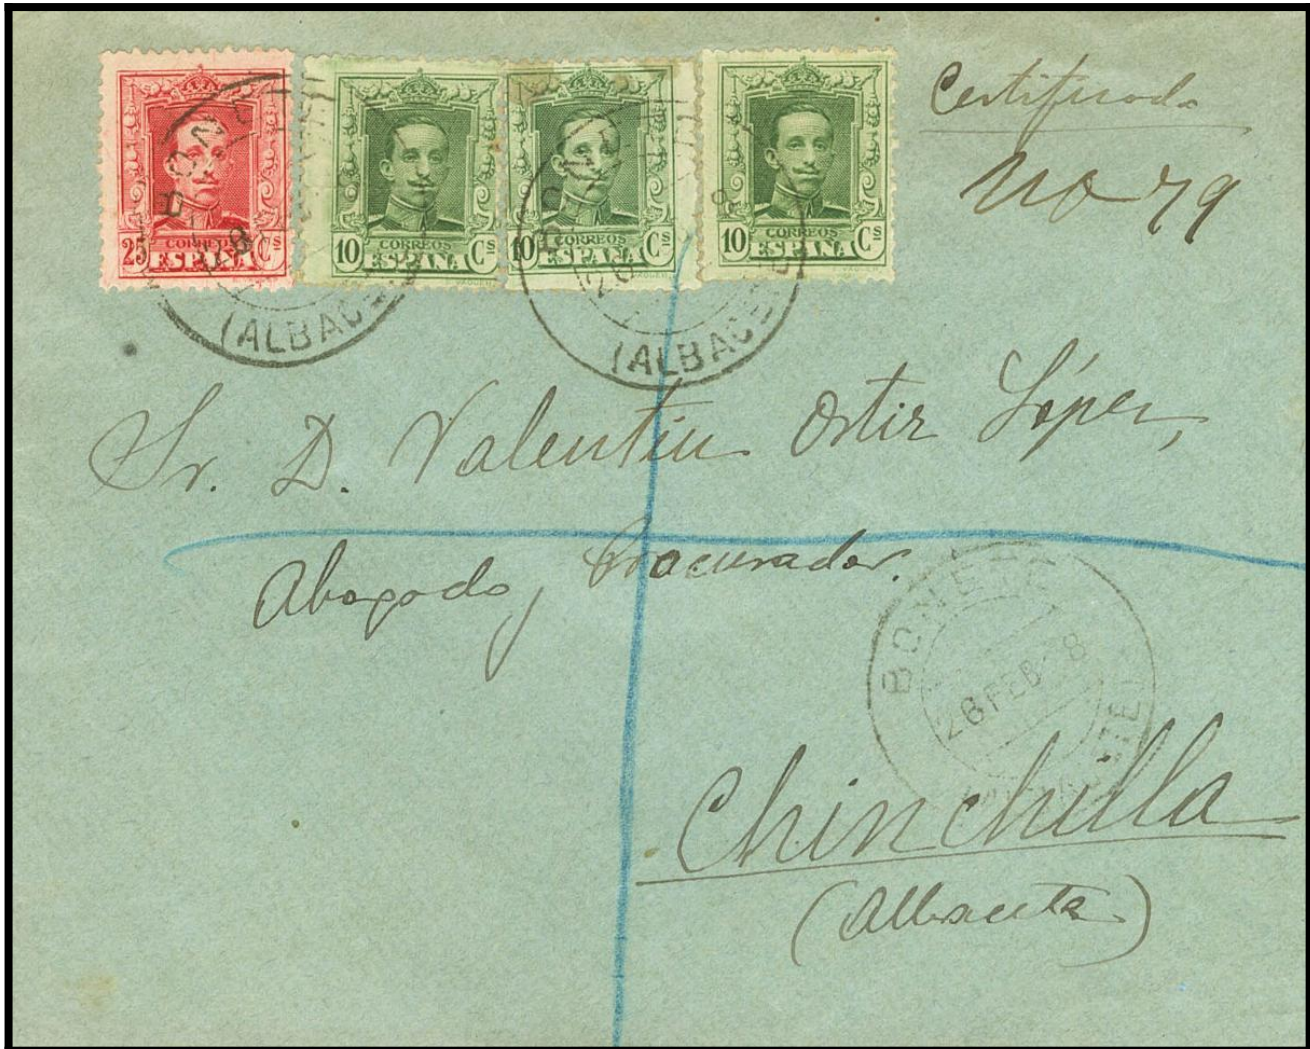 25 CORREOS ESPAÑA Cs
10 CORREOS ESPAÑA Cs
10 CORREOS ESPAÑA Cs
10 CORREOS ESPAÑA Cs
Certificado
No 79
Sr. D. Valentin Ortiz López,
Abogado, Procurador.
BONETE
26 FEB 28
Chinchilla
(Albacete)